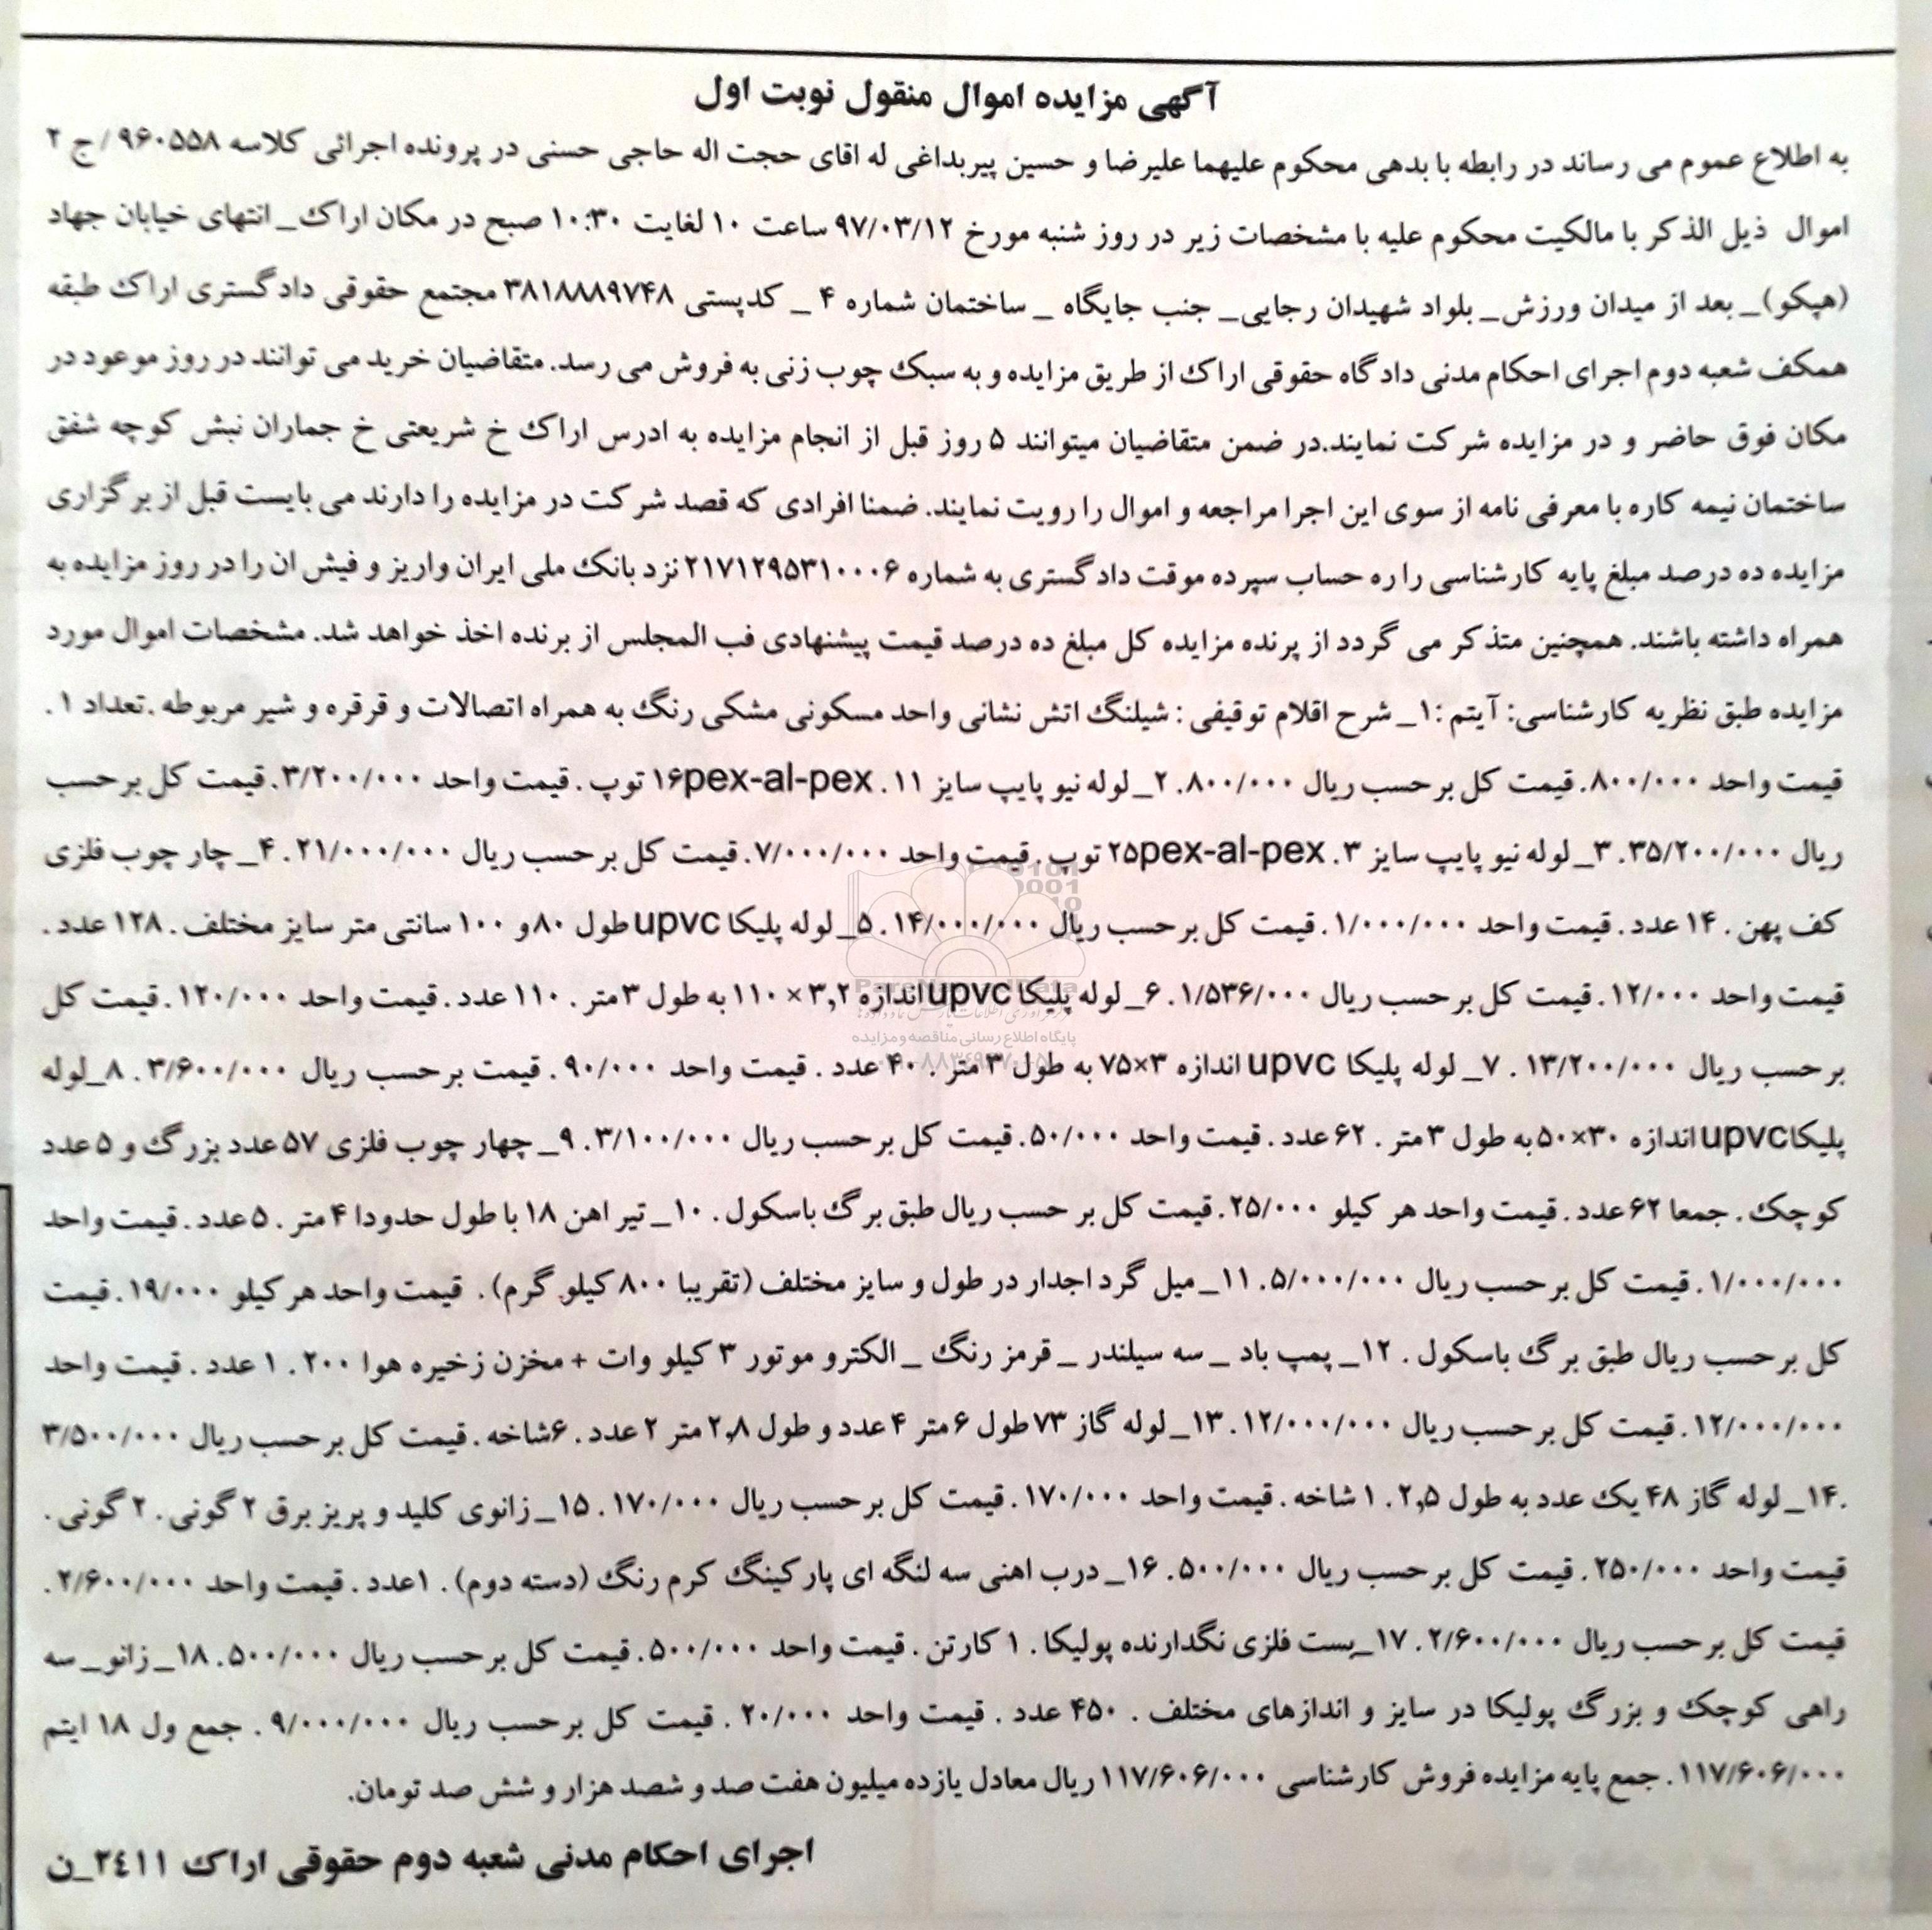 آگهی مزایده اموال منقول نوبت اول
به اطلاع عموم می رساند در رابطه با بدهی محکوم علیهما علیرضا و حسین پیربداغی له اقای حجت اله حاجی حسنی در پرونده اجرائی کلاسه ۹۶۰۵۵۸ / ج ۲
اموال ذیل الذکر با مالکیت محکوم علیه با مشخصات زیر در روز شنبه مورخ ۹۷/۰۳/۱۲ ساعت ۱۰ لغایت ۱۰:۳۰ صبح در مکان اراک_ انتهای خیابان جهاد
(هپکو)_ بعد از میدان ورزش_ بلواد شهیدان رجایی_ جنب جایگاه _ ساختمان شماره ۴ _ کدپستی ۳۸۱۸۸۸۹۷۴۸ مجتمع حقوقی دادگستری اراک طبقه
همکف شعبه دوم اجرای احکام مدنی دادگاه حقوقی اراک از طریق مزایده و به سبک چوب زنی به فروش می رسد. متقاضیان خرید می توانند در روز موعود در
مکان فوق حاضر و در مزایده شرکت نمایند.در ضمن متقاضیان میتوانند ۵ روز قبل از انجام مزایده به ادرس اراک خ شریعتی خ جماران نبش کوچه شفق
ساختمان نیمه کاره با معرفی نامه از سوی این اجرا مراجعه و اموال را رویت نمایند. ضمنا افرادی که قصد شرکت در مزایده را دارند می بایست قبل از برگزاری
مزایده ده درصد مبلغ پایه کارشناسی را ره حساب سپرده موقت دادگستری به شماره ۲۱۷۱۲۹۵۳۱۰۰۰۶ نزد بانک ملی ایران واریز و فیش ان را در روز مزایده به
همراه داشته باشند. همچنین متذکر می گردد از پرنده مزایده کل مبلغ ده درصد قیمت پیشنهادی فب المجلس از برنده اخذ خواهد شد. مشخصات اموال مورد
مزایده طبق نظریه کارشناسی: آیتم :۱_ شرح اقلام توقیفی : شیلنگ اتش نشانی واحد مسکونی مشکی رنگ به همراه اتصالات و قرقره و شیر مربوطه .تعداد ۱ .
قیمت واحد ۸۰۰/۰۰۰. قیمت کل بر حسب ریال ۸۰۰/۰۰۰. ۲_ لوله نیو پایپ سایز ۱۶pex-al-pex . ۱۱ توپ . قیمت واحد ۳/۲۰۰/۰۰۰. قیمت کل بر حسب
ریال ۳۵/۲۰۰/۰۰۰. ۳_ لوله نیو پایپ سایز ۲۵pex-al-pex . ۳ توپ . قیمت واحد ۷/۰۰۰/۰۰۰. قیمت کل بر حسب ریال ۲۱/۰۰۰/۰۰۰. ۴_ چار چوب فلزی
کف پهن . ۱۴ عدد . قیمت واحد ۱/۰۰۰/۰۰۰. قیمت کل بر حسب ریال ۱۴/۰۰۰/۰۰۰. ۵_ لوله پلیکا upvc طول ۸۰ و ۱۰۰ سانتی متر سایز مختلف . ۱۲۸ عدد .
قیمت واحد ۱۲/۰۰۰. قیمت کل بر حسب ریال ۱/۵۳۶/۰۰۰. ۶_ لوله پلیکا upvc اندازه ۳,۲ × ۱۱۰ به طول ۳ متر . ۱۱۰ عدد . قیمت واحد ۱۲۰/۰۰۰. قیمت کل
بر حسب ریال ۱۳/۲۰۰/۰۰۰ . ۷_ لوله پلیکا upvc اندازه ۳×۷۵ به طول ۳ متر . ۴۰ عدد . قیمت واحد ۹۰/۰۰۰. قیمت بر حسب ریال ۳/۶۰۰/۰۰۰ . ۸_ لوله
پلیکا upvc اندازه ۳۰×۵۰ به طول ۳ متر . ۶۲ عدد . قیمت واحد ۵۰/۰۰۰. قیمت کل بر حسب ریال ۳/۱۰۰/۰۰۰. ۹_ چهار چوب فلزی ۵۷ عدد بزرگ و ۵ عدد
کوچک . جمعا ۶۲ عدد . قیمت واحد هر کیلو ۲۵/۰۰۰. قیمت کل بر حسب ریال طبق برگ باسکول . ۱۰_ تیر اهن ۱۸ با طول حدودا ۴ متر . ۵ عدد . قیمت واحد
۱/۰۰۰/۰۰۰. قیمت کل بر حسب ریال ۵/۰۰۰/۰۰۰. ۱۱_ میل گرد اجدار در طول و سایز مختلف (تقریبا ۸۰۰ کیلو گرم) . قیمت واحد هر کیلو ۱۹/۰۰۰. قیمت
کل بر حسب ریال طبق برگ باسکول . ۱۲_ پمپ باد _ سه سیلندر _ قرمز رنگ _ الکترو موتور ۳ کیلو وات + مخزن زخیره هوا ۲۰۰ . ۱ عدد . قیمت واحد
۱۲/۰۰۰/۰۰۰. قیمت کل بر حسب ریال ۱۲/۰۰۰/۰۰۰. ۱۳_ لوله گاز ۷۳ طول ۶ متر ۴ عدد و طول ۲,۸ متر ۲ عدد . ۶شاخه . قیمت کل بر حسب ریال ۳/۵۰۰/۰۰۰
.۱۴_ لوله گاز ۴۸ یک عدد به طول ۲,۵ . ۱ شاخه . قیمت واحد ۱۷۰/۰۰۰. قیمت کل بر حسب ریال ۱۷۰/۰۰۰. ۱۵_ زانوی کلید و پریز برق ۲ گونی . ۲ گونی .
قیمت واحد ۲۵۰/۰۰۰ . قیمت کل بر حسب ریال ۵۰۰/۰۰۰. ۱۶_ درب اهنی سه لنگه ای پارکینگ کرم رنگ (دسته دوم) . ۱عدد . قیمت واحد ۲/۶۰۰/۰۰۰ .
قیمت کل بر حسب ریال ۲/۶۰۰/۰۰۰. ۱۷_ بست فلزی نگدارنده پولیکا . ۱ کارتن . قیمت واحد ۵۰۰/۰۰۰. قیمت کل بر حسب ریال ۵۰۰/۰۰۰. ۱۸_ زانو_ سه
راهی کوچک و بزرگ پولیکا در سایز و اندازهای مختلف . ۴۵۰ عدد . قیمت واحد ۲۰/۰۰۰ . قیمت کل بر حسب ریال ۹/۰۰۰/۰۰۰ . جمع ول ۱۸ ایتم
۱۱۷/۶۰۶/۰۰۰. جمع پایه مزایده فروش کارشناسی ۱۱۷/۶۰۶/۰۰۰ ریال معادل یازده میلیون هفت صد و شصد هزار و شش صد تومان.
اجرای احکام مدنی شعبه دوم حقوقی اراک ۲٤۱۱_ن
پایگاه اطلاع رسانی مناقصه و مزایده